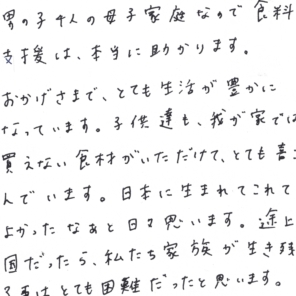 男の子4人の母子家庭なので食料
支援は、本当に助かります。
おかげさまで、とても生活が豊かに
なっています。子供達も、我が家では
買えない食材がいただけて、とても喜
んでいます。日本に生まれてこれて
よかったなあと日々思います。途上
国だったら、私たち家族が生き残
る事はとても困難だったと思います。